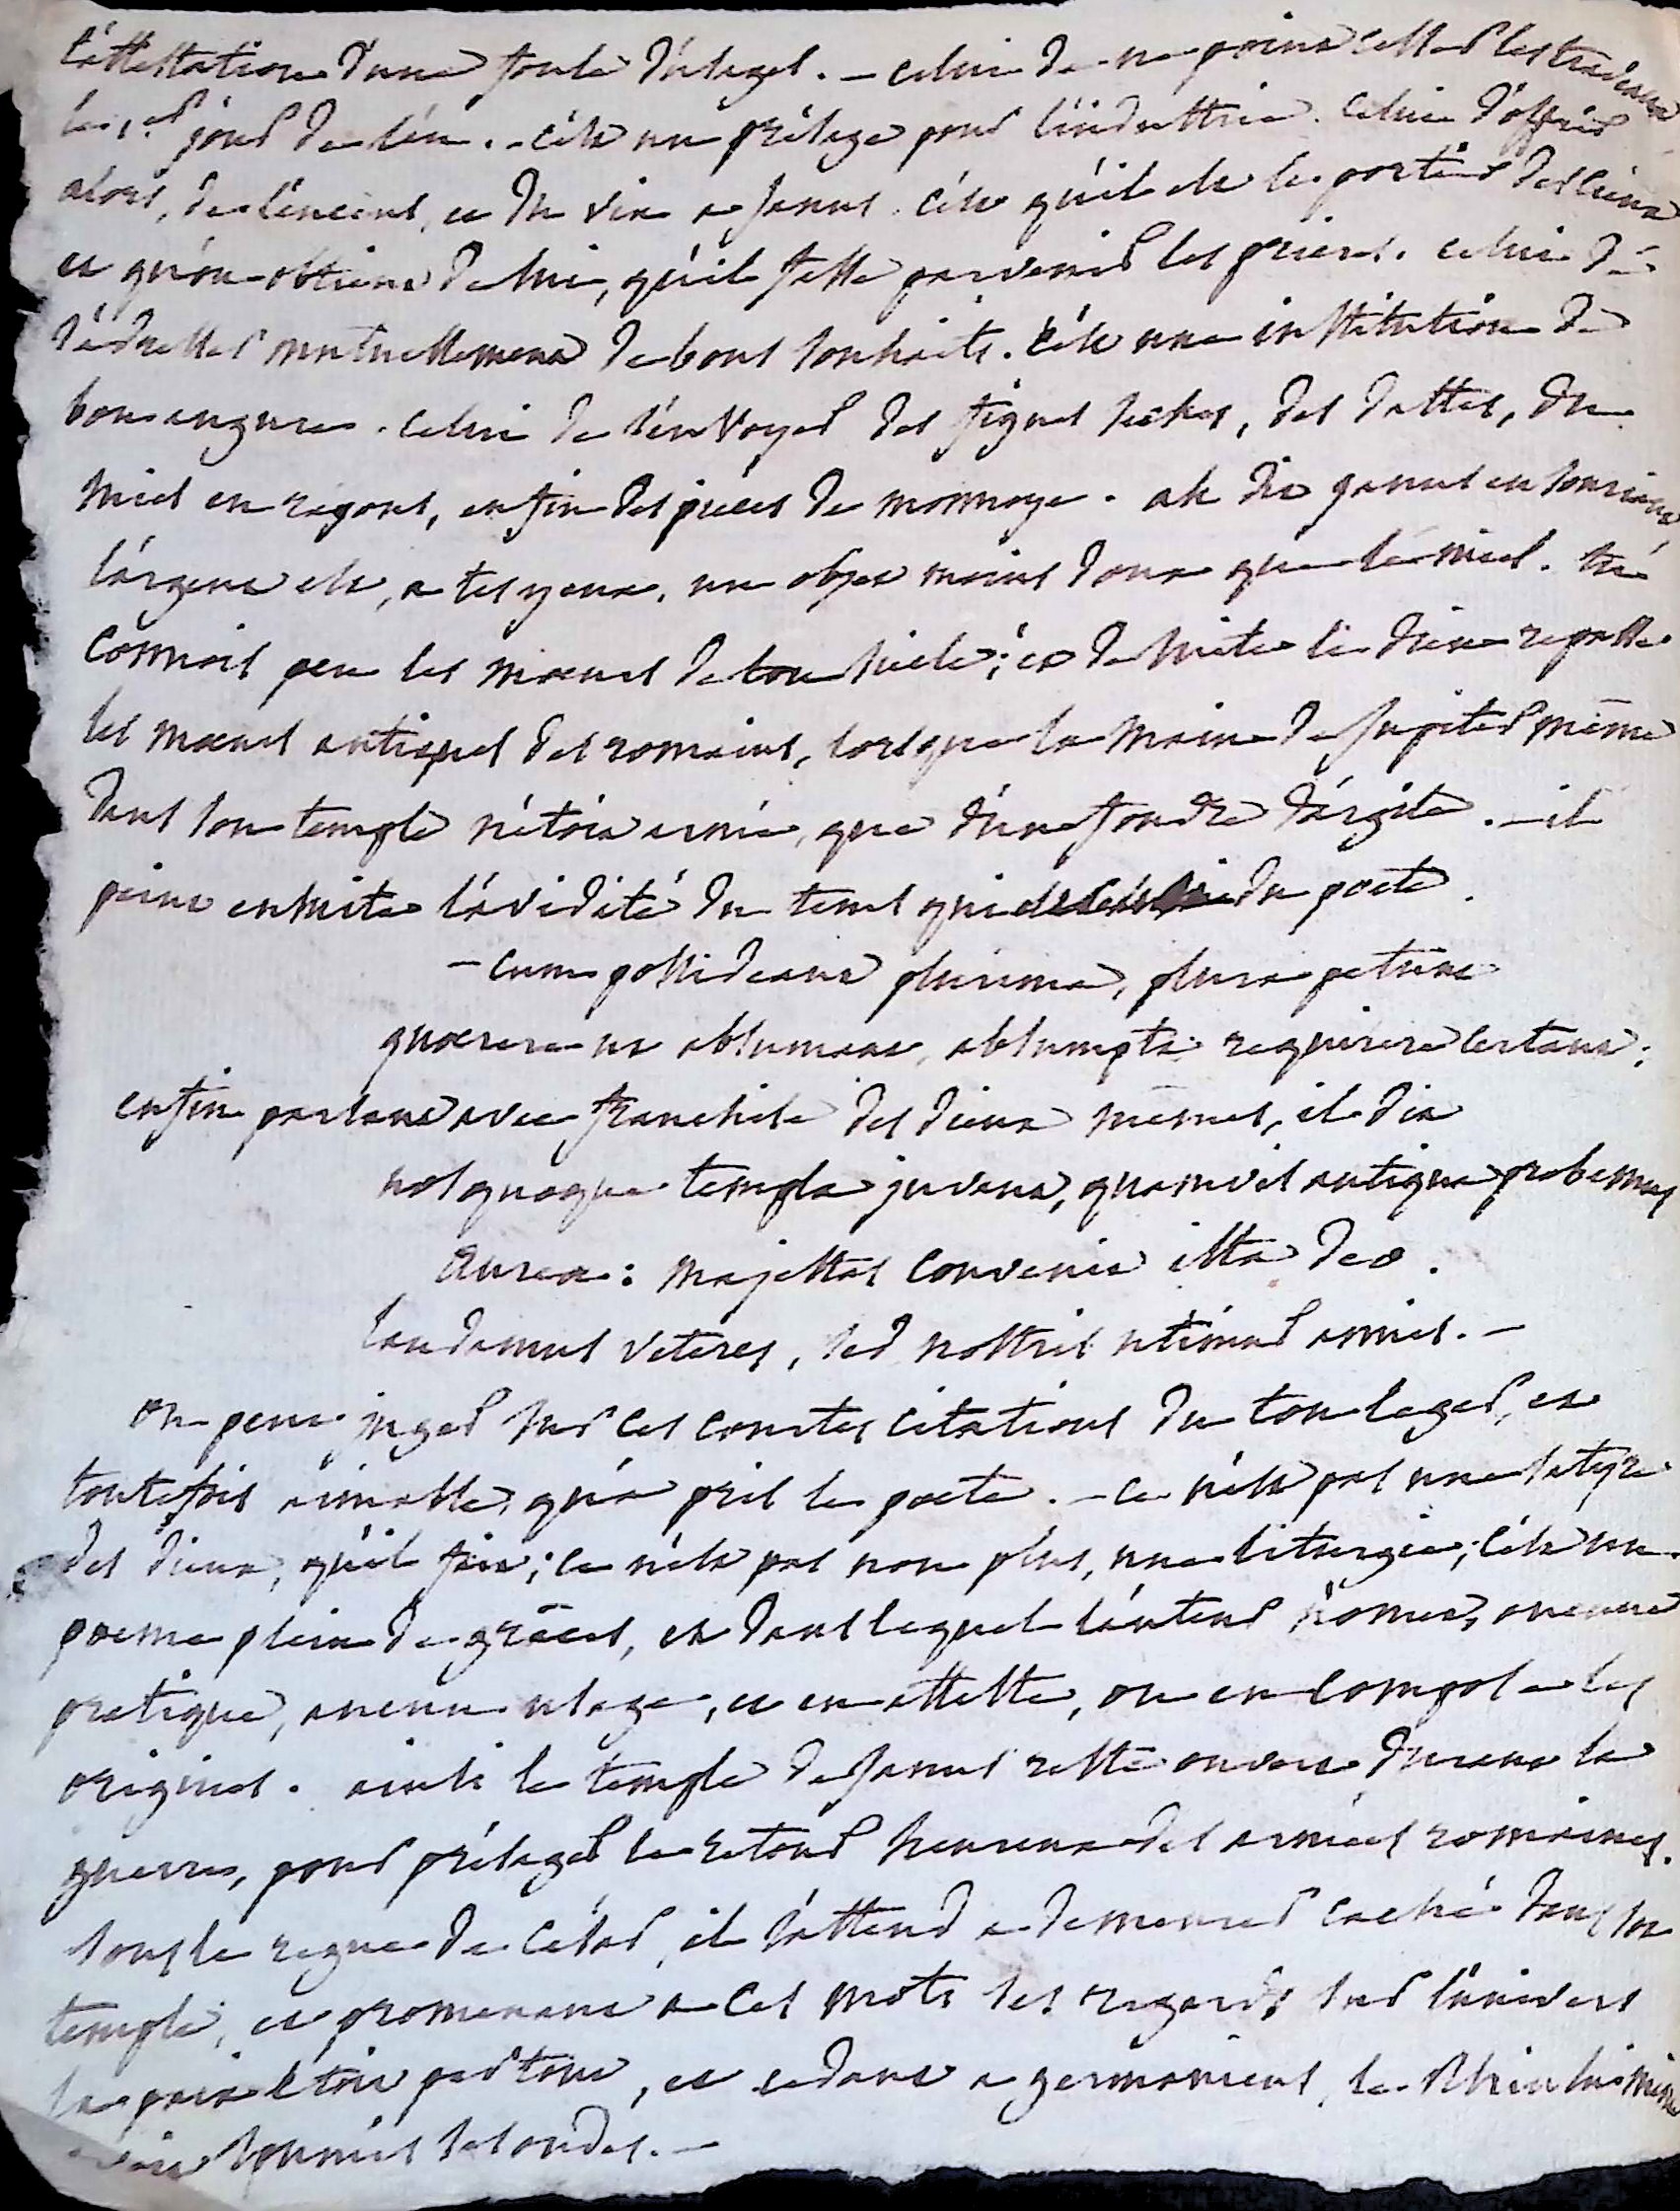 l'attestation d'une foule d'usages. - celui de ne point cesser les travaux
le 1.er jour de l'an. - c'est un présage pour l'industrie. celui d'offrir
alors, de l'encens, et du vin a Janus. c'est qu'il est le portier des cieux
et qu'on obtient de lui, qu'il fasse parvenir les prieres. celui de
s'adresser mutuellement de bons souhaits. c'est une institution de
bon augure. celui de s'envoyer des figues sêches, des dattes, du
miel en rayons, enfin des pièces de monnoye. ah dit Janus en souriant
l'argent est, a tes yeux, un objet moins doux que le miel. tu
connois peu les moeurs de ton siècle; et de suite le dieu repasse
les moeurs antiques des romains, lorsque la main de Jupiter même
dans son temple n'étoit armée, que d'une foudre d'argile. - il
peint ensuite l'avidité du tems qui du poete.
- cum possideant plurima, plura petunt
quoerere ut absumant, absumpta requirere certant;
enfin parlant avec franchise des dieux mêmes, il dit
nos quoque templa juvant, quamvis antiqua probemus
aurea: majestas convenit ista deo.
laudamus veteres, sed nostris utimur annis. -
on peut juger sur ces courtes citations du ton leger, et
toutefois aimable, qu'a pris le poete. - ce n'est pas une satyre
des dieux, qu'il fait; ce n'est pas non plus, une liturgie; c'est un
poeme plein de grâces, et dans lequel l'auteur n'omet, aucune
pratique, aucun usage, et en atteste, ou en compose les
origines. ainsi le temple de Janus reste ouvert durant la
guerre, pour présager le retour heureux des armées romaines.
sous le regne de César, il s'attend a demeurer caché dans son
temple, et promenant a ces mots ses regards sur l'univers
la paix étoit partout, et cedant a germanicus, le Rhin lui même
avoit soumis ses ondes. -